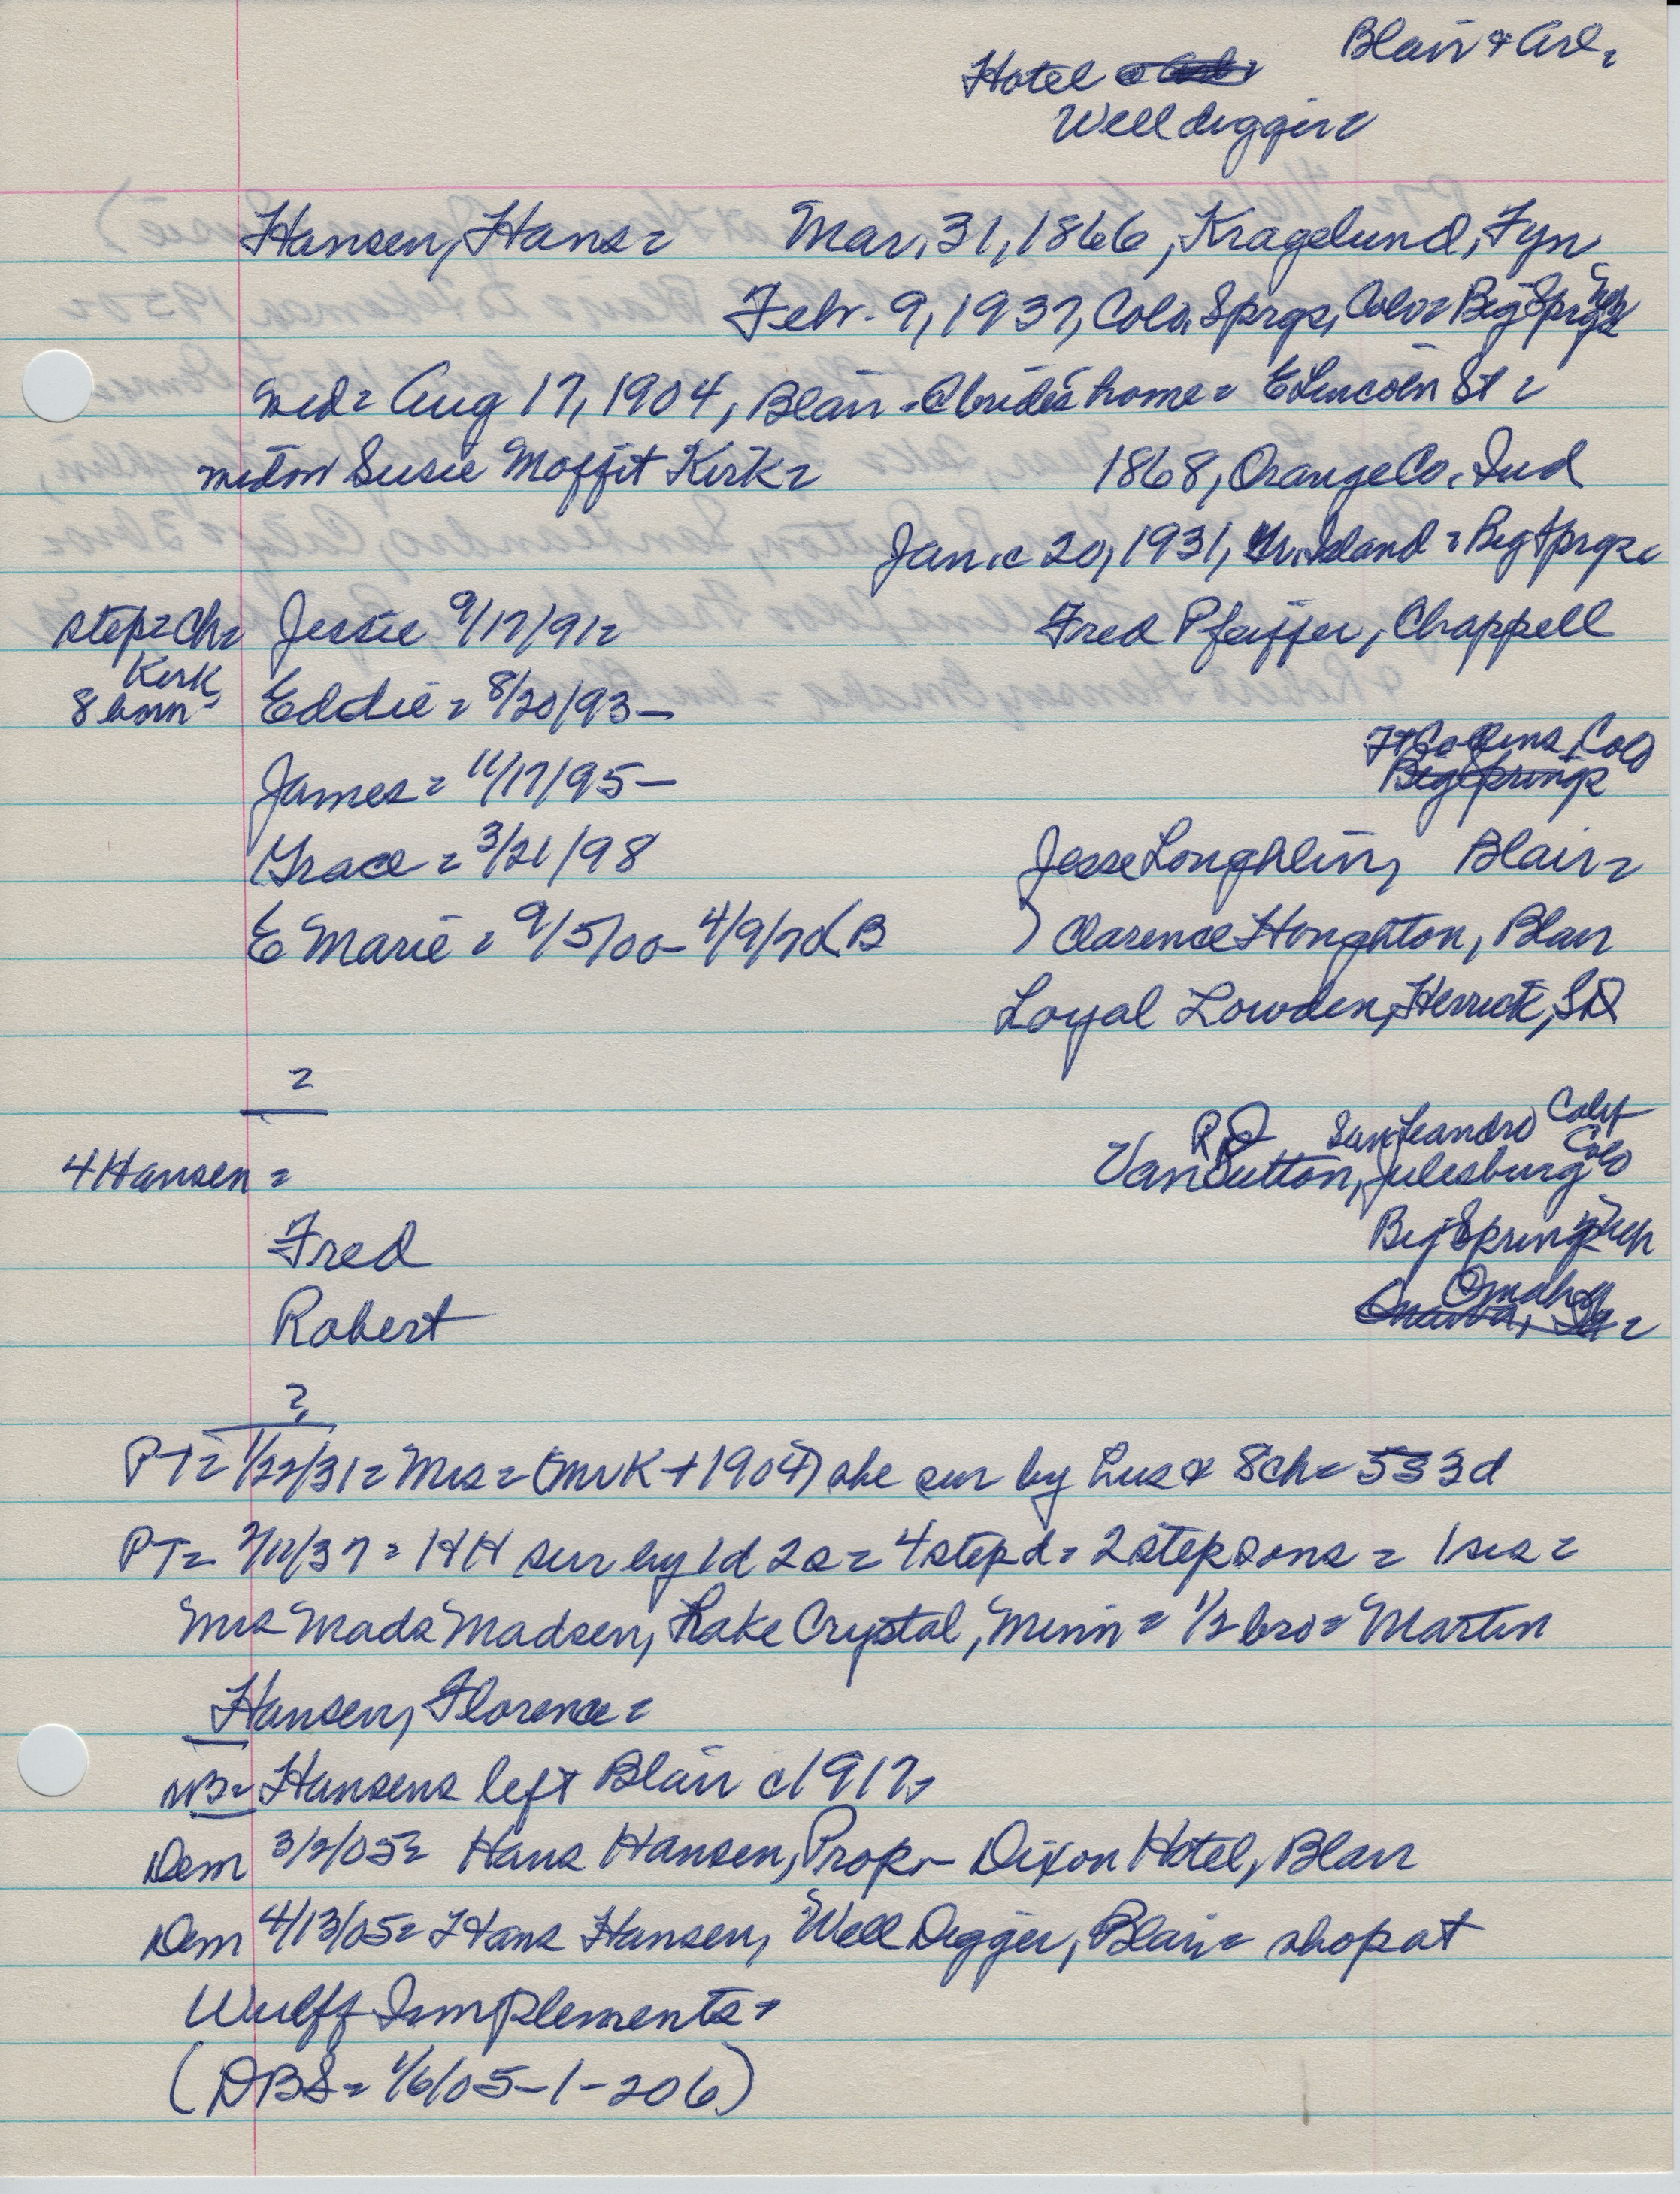 Blair & Arl.
Hotel
Well digger
Hansen, Hans = Mar. 31, 1866, Kragelund, Fyn
Febr. 9, 1937, Colo. Sprgs, Colo = Big Sprgs Neb
wed = Aug 17, 1904, Blair - @ bride's home = E Lincoln St =
Susie Moffit Kirk = 1868, Orange Co. Ind
Jan. c 20, 1931, Gr. Island = Big Sprgs
step = Ch = Jessie 9/17/91 = Fred Pfeiffer, Chappell
Kirk
8 born Eddie = 8/20/93 -
Ft Collins, Colo
James = 11/17/95 - Big Springs
Grace = 3/21/98 Jesse Loughlin, Blair =
E Marie = 9/5/00 - 4/9/70 (B ) Clarence Houghton, Blair
Loyal Lowden, Herrick, SD
?
RD San Leandro Calif
4 Hansen = Van Sutton, Julesburg Colo
Fred Big Spring Neb
Omaha
Robert Onawa, Ia =
?
PT = 1/22/31 = Mrs = (Mr K + 1904) she sur by hus & 8 ch = 5s 3d
PT = 2/11/37 = HH sur by 1d 2s = 4 step d = 2 stepsons = 1 sis =
Mrs Mads Madsen, Lake Crystal, Minn = 1/2 bro = Martin
Hansen, Florence =
NB = Hansens left Blair c 1917,
Dem 3/2/05 = Hans Hansen, Propr - Dixon Hotel, Blair
Dem 4/13/05 = Hans Hansen, Well Digger, Blair = shop at
Wulff Implements =
(DBS = 1/6/05 - 1 - 206)